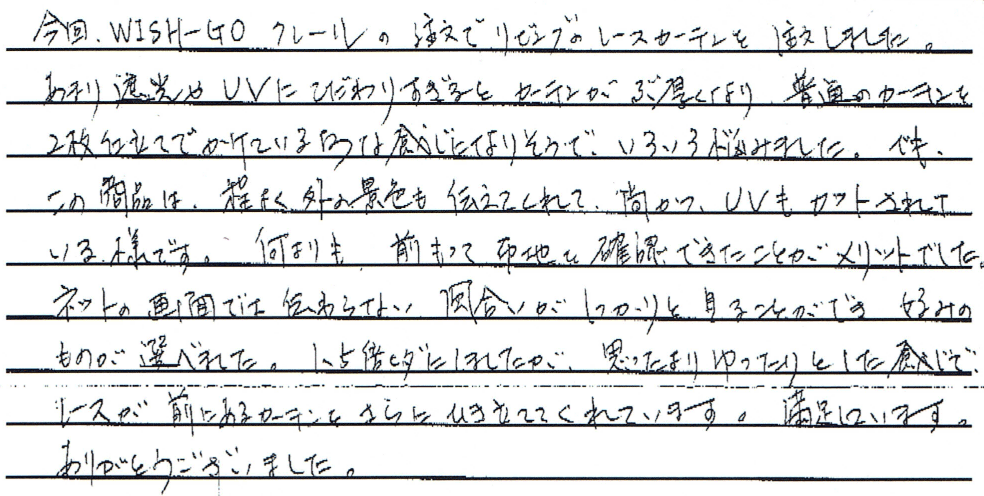 今回、WISH-GO クレールの注文でリビングのレースカーテンを注文しました。
あまり遮光やUVにこだわりすぎるとカーテンがぶ厚くなり、普通のカーテンを
2枚仕立てでかけているような感じになりそうで、いろいろ悩みました。でも、
この商品は、程よく外の景色も伝えてくれて、尚かつ、UVもカットされて
いる様です。何よりも、前もって布地を確認できたことがメリットでした。
ネットの画面では伝わらない風合いがしっかりと見ることができ好みの
ものが選べました。1.5倍ヒダにしましたが、思ったよりゆったりとした感じで
レースが前にあるカーテンをさらにひき立ててくれています。満足しています。
ありがとうございました。